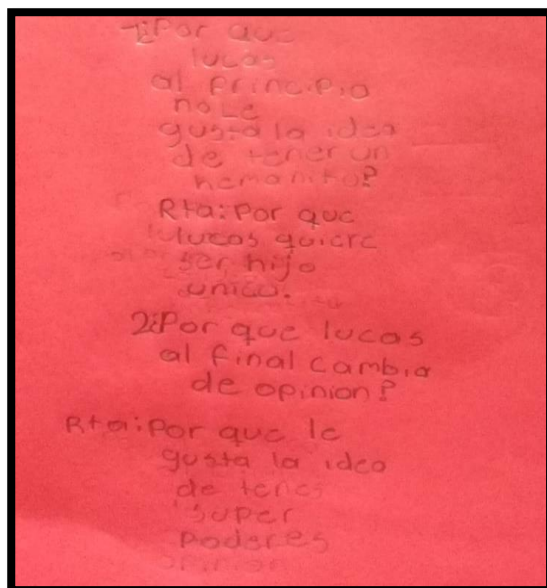 1¿Por que
lucas
al principio
no Le
gusta la idea
de tener un
hemanito?
Rta: Por que
lucas quiere
ser hijo
unico.
2¿Por que lucas
al final cambia
de opinion?
Rta: Por que le
gusta la idea
de tener
super
poderes